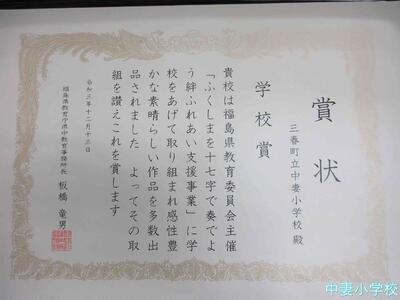 賞状
三春町立中妻小学校 殿
学校賞
貴校は福島県教育委員会主催
「ふくしまを十七字で奏でよ
う絆ふれあい支援事業」に学
校をあげて取り組まれ感性豊
かな素晴らしい作品を多数出
品されました よってその取
組を讃えこれを賞します
令和三年十二月十三日
福島県教育庁県中教育事務所長 板橋 竜男
中妻小学校